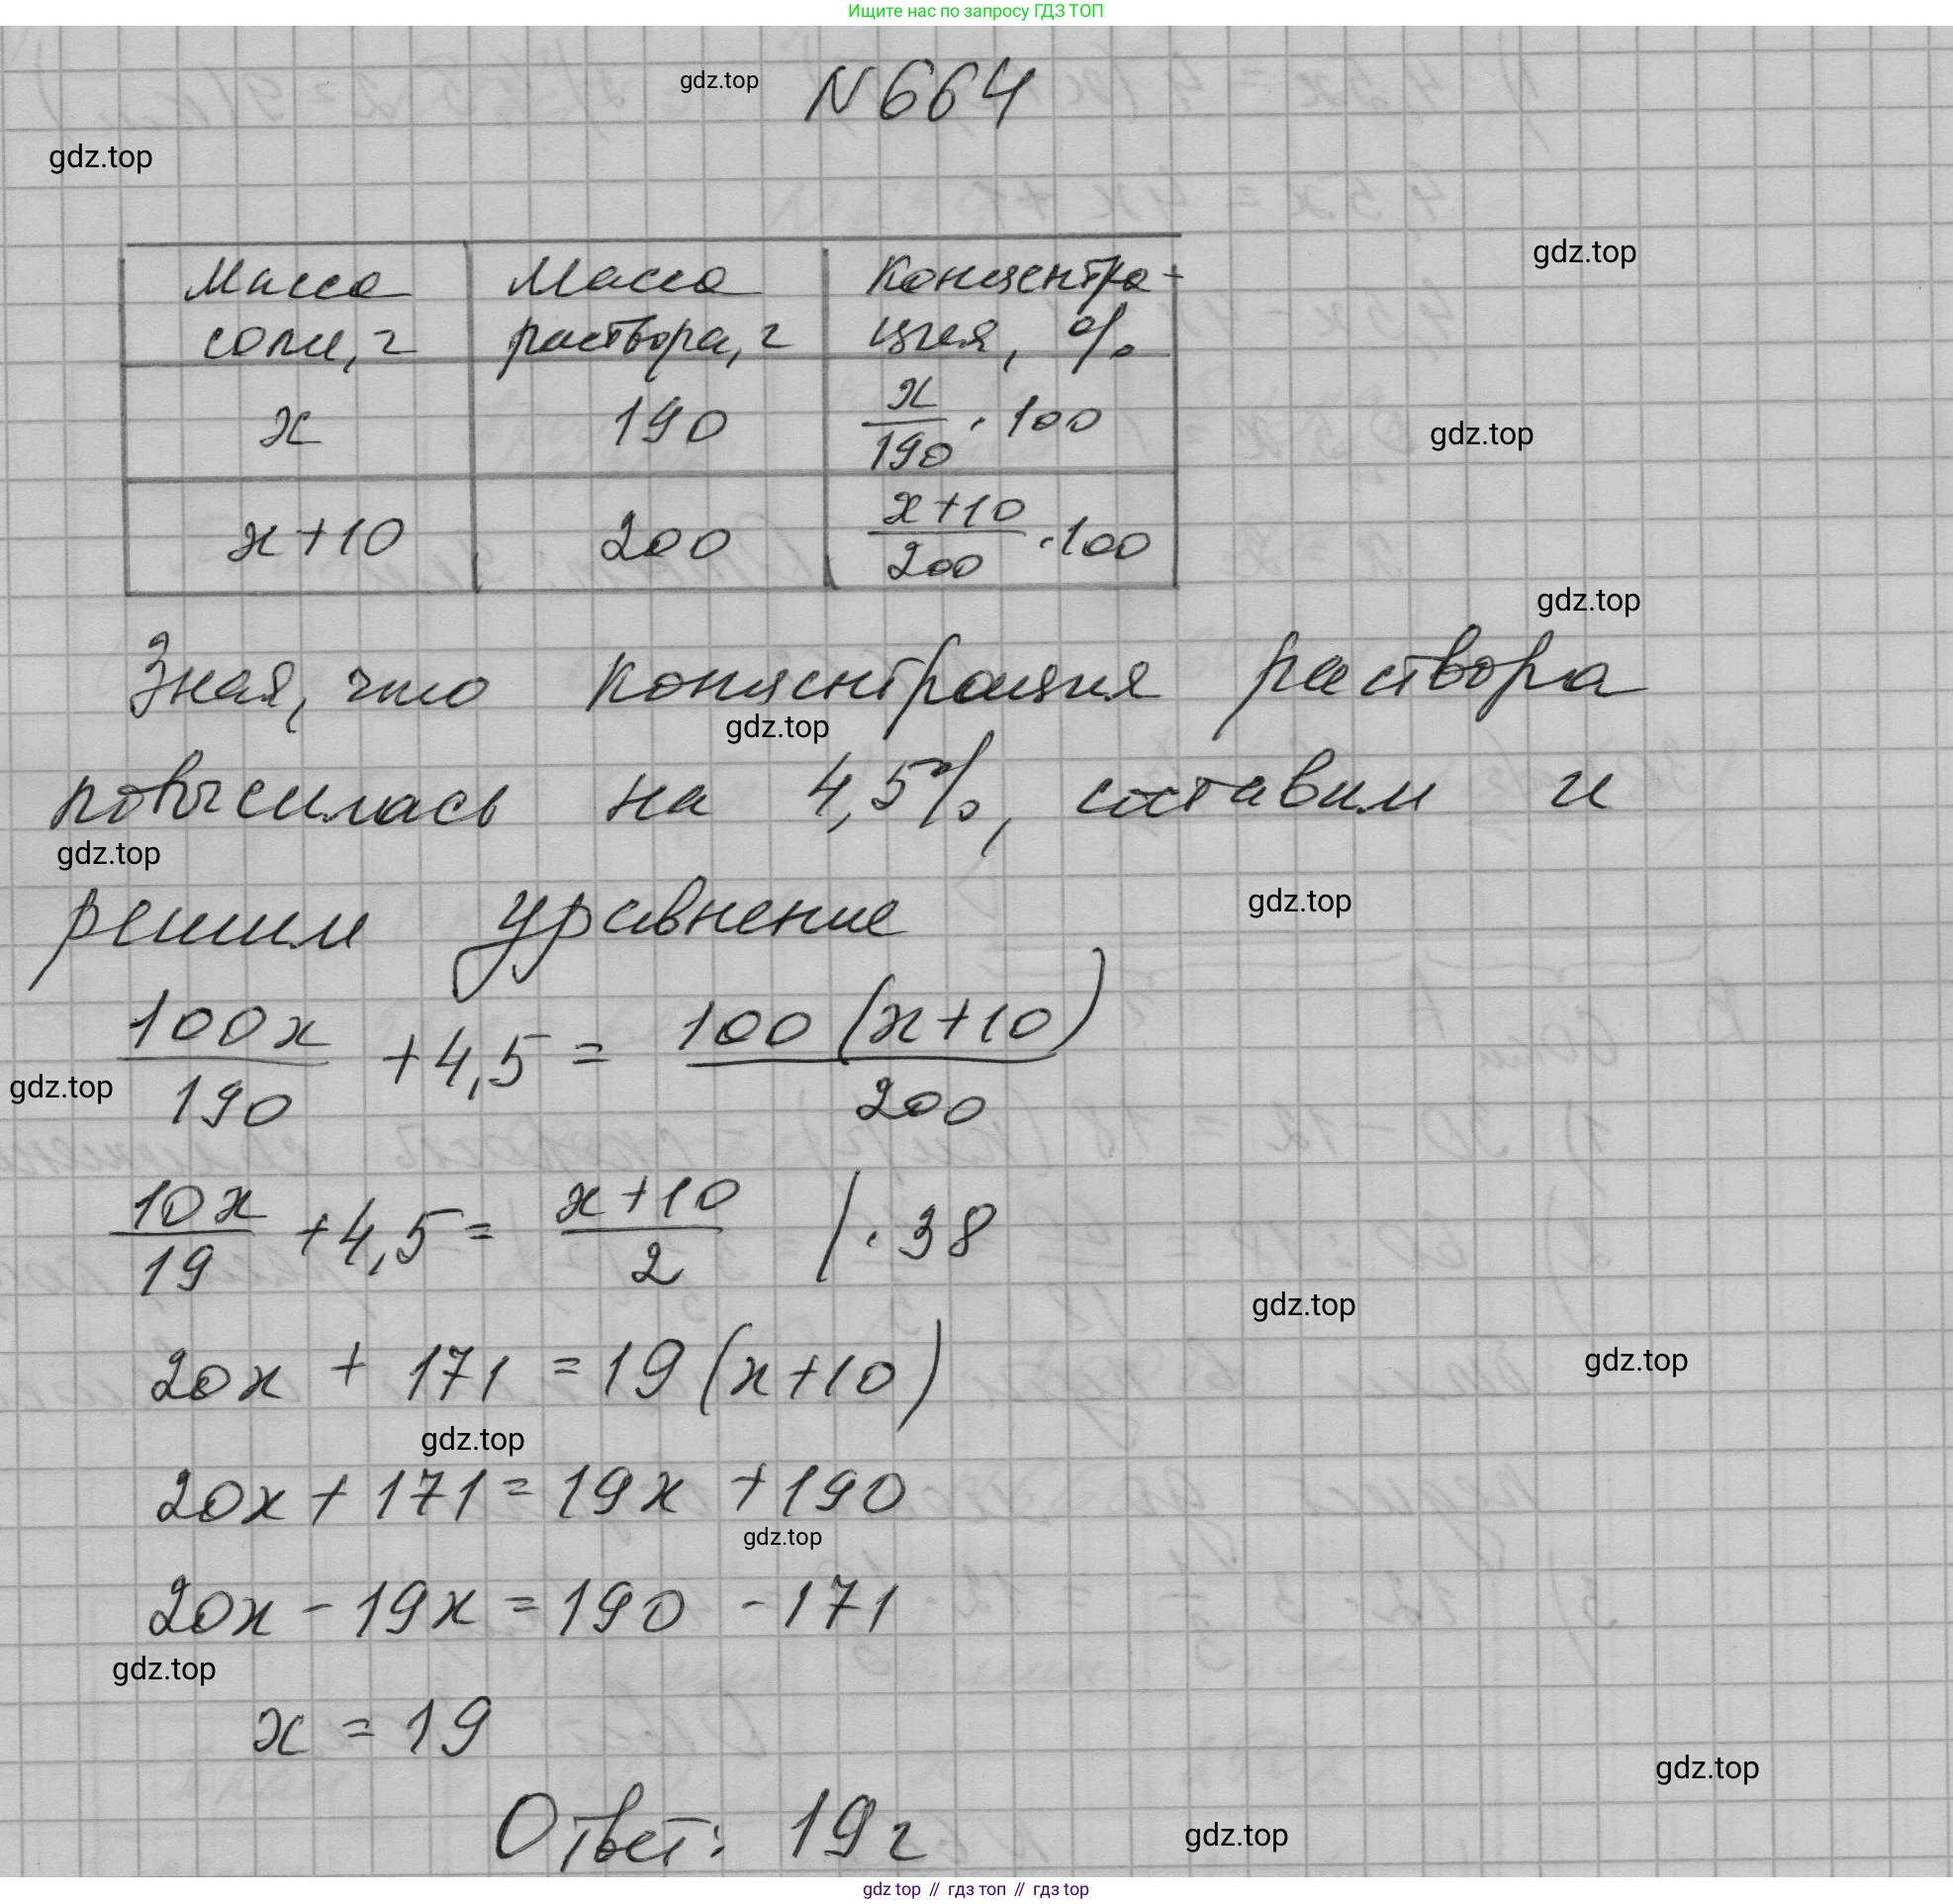 Ищите нас по запросу ГДЗ ТОП
gdz.top
N 664
gdz.top
Масса соли, г | Масса раствора, г | Концентра-ция, %
gdz.top
x | 190 | x/190 · 100
gdz.top
x+10 | 200 | x+10/200 · 100
gdz.top
Зная, что концентрация раствора
gdz.top
повысилась на 4,5%, составим и
gdz.top
решим уравнение
gdz.top
100x/190 + 4,5 = 100(x+10)/200
gdz.top
10x/19 + 4,5 = x+10/2 | · 38
gdz.top
20x + 171 = 19(x+10)
gdz.top
gdz.top
20x + 171 = 19x + 190
gdz.top
20x - 19x = 190 - 171
gdz.top
x = 19
gdz.top
Ответ: 19 г
gdz.top
gdz top // гдз топ // гдз top